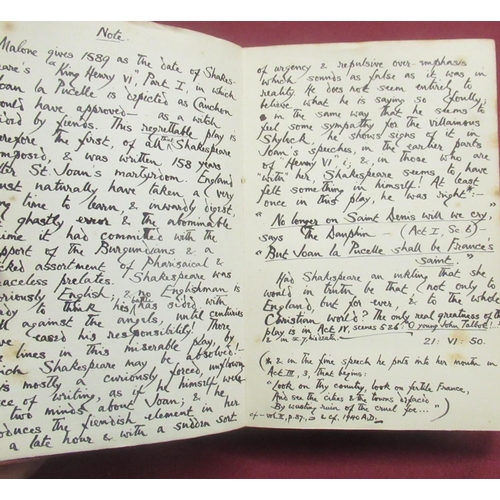 Note.
Malone gives 1589 as the date of Shakes-
peare's "King Henry VI", Part I, in which
Joan la Pucelle is depicted as Cauchon
would have approved — as a witch
aided by fiends. This regrettable play is
therefore, the first, of all Shakespeare
composed, & was written 158 years
after St. Joan's martyrdom. England
must naturally have taken a very
long time to learn, & inwardly digest,
ghastly error & the abominable
crime it had committed with the
support of the Burgundians & a
wicked assortment of Pharisaical &
graceless prelates. Shakespeare was
curiously English; & no Englishman is
ready to think his battle was sided with
all against the angels, until centuries
have eased his responsibility! There
are lines in this miserable play, by
which Shakespeare may be absolved!
is mostly a curiously forced,
piece of writing, as if he himself were
two minds about Joan; & he
produces the fiendish element in her
a late hour & with a sudden sort
of urgency & repulsive over-emphasis
which sounds as false as it was in
reality. He does not seem entirely to
believe what he is saying so loudly;
in the same way that he seems to
feel some sympathy for the villainous
Shylock, he shows signs of it in
Joan's speeches, in the earlier parts
of "Henry VI" i, &, in those who are
"with" her, Shakespeare seems, to have
felt something in himself! At least
once in this play, he was right*—
"No longer on Saint Denis will we cry,"
says the Dauphin — (Act I, Sc. 6) —
"But Joan la Pucelle shall be France's
Saint."
Had Shakespeare an inkling that she
would in truth be that (not only to
England, but for ever & to the whole
Christian world? The only real greatness of the
play is in Act IV, scenes 5 & 6: "O young John Talbot!"
21: VI: 50.
(* & in the fine speech he puts into her mouth in
Act III, 3, that begins:
"Look on thy country, look on fertile France,
And see the cities & the towns defaced
By wasting ruin of the cruel foe...")
1940 A.D.